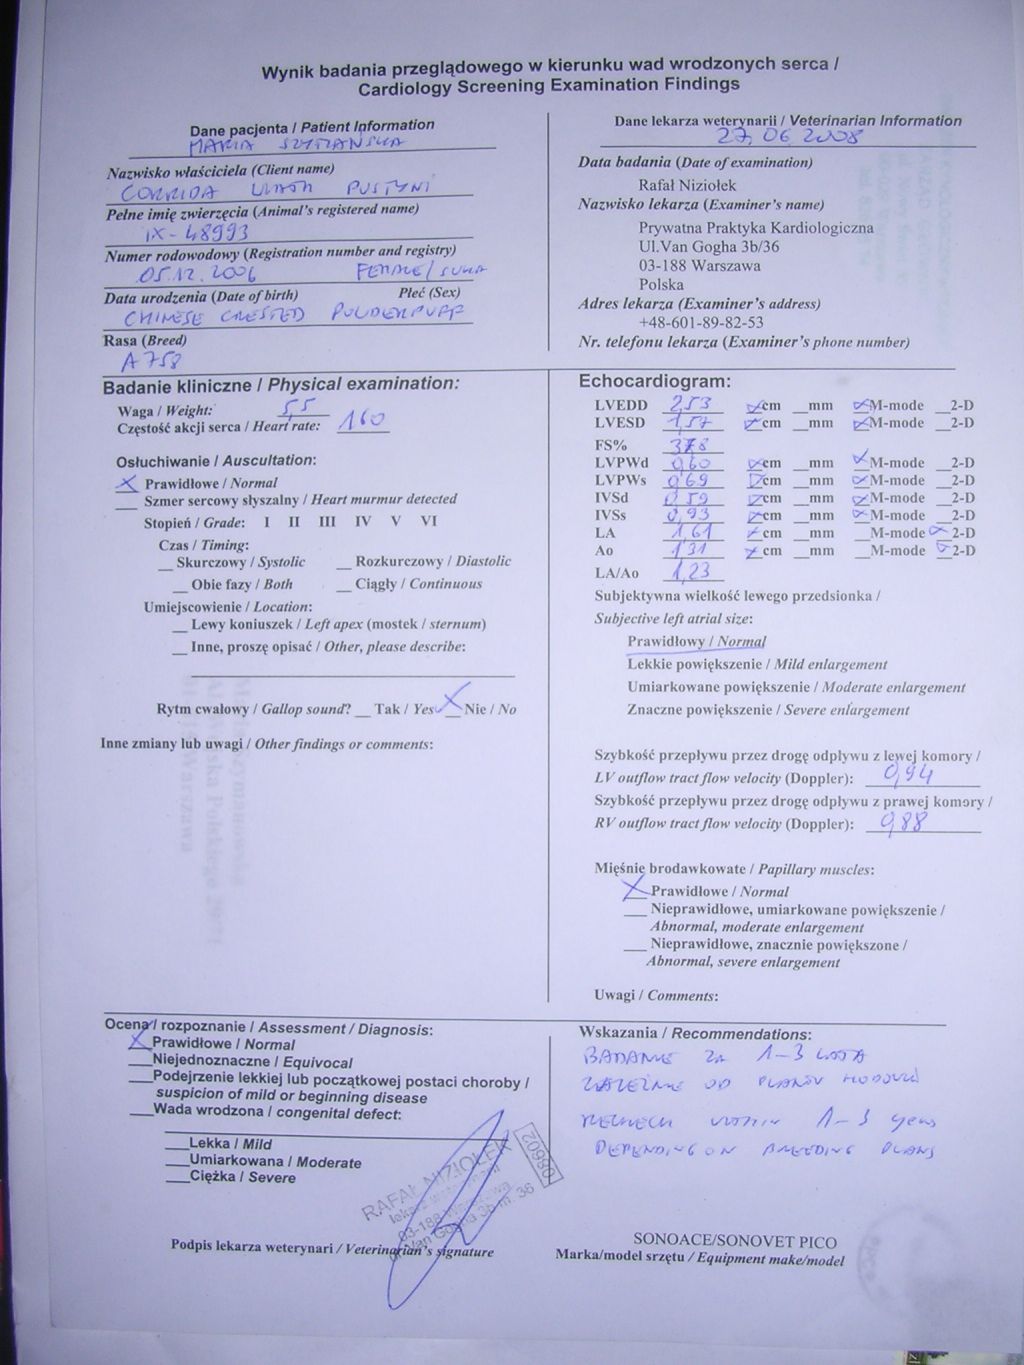 Wynik badania przeglądowego w kierunku wad wrodzonych serca /
Cardiology Screening Examination Findings
Dane pacjenta / Patient Information
MARIA SZYMAŃSKA
Nazwisko właściciela (Client name)
CORRIDA WŁATCA PUSTYNI
Pełne imię zwierzęcia (Animal's registered name)
IX-48993
Numer rodowodowy (Registration number and registry)
05.12.2006 FEMALE / SUKA
Data urodzenia (Date of birth) Płeć (Sex)
CHINESE CRESTED POWDERPUFF
Rasa (Breed)
A758
Dane lekarza weterynarii / Veterinarian Information
27, 06 2008
Data badania (Date of examination)
Rafał Niziołek
Nazwisko lekarza (Examiner's name)
Prywatna Praktyka Kardiologiczna
Ul.Van Gogha 3b/36
03-188 Warszawa
Polska
Adres lekarza (Examiner's address)
+48-601-89-82-53
Nr. telefonu lekarza (Examiner's phone number)
Badanie kliniczne / Physical examination:
Waga / Weight: 5,5
Częstość akcji serca / Heart rate: 160
Osłuchiwanie / Auscultation:
X Prawidłowe / Normal
__ Szmer sercowy słyszalny / Heart murmur detected
Stopień / Grade: I II III IV V VI
Czas / Timing:
__ Skurczowy / Systolic __ Rozkurczowy / Diastolic
__ Obie fazy / Both __ Ciągły / Continuous
Umiejscowienie / Location:
__ Lewy koniuszek / Left apex (mostek / sternum)
__ Inne, proszę opisać / Other, please describe:
Rytm cwałowy / Gallop sound? __ Tak / Yes X Nie / No
Inne zmiany lub uwagi / Other findings or comments:
Echocardiogram:
LVEDD 2,53 cm __mm M-mode __2-D
LVESD 1,57 cm __mm M-mode __2-D
FS% 37,8
LVPWd 0,60 cm __mm M-mode __2-D
LVPWs 0,69 cm __mm M-mode __2-D
IVSd 0,59 cm __mm M-mode __2-D
IVSs 0,93 cm __mm M-mode __2-D
LA 1,61 cm __mm __M-mode 2-D
Ao 1,31 cm __mm __M-mode 2-D
LA/Ao 1,23
Subjektywna wielkość lewego przedsionka /
Subjective left atrial size:
Prawidłowy / Normal
Lekkie powiększenie / Mild enlargement
Umiarkowane powiększenie / Moderate enlargement
Znaczne powiększenie / Severe enlargement
Szybkość przepływu przez drogę odpływu z lewej komory /
LV outflow tract flow velocity (Doppler): 0,94
Szybkość przepływu przez drogę odpływu z prawej komory /
RV outflow tract flow velocity (Doppler): 0,88
Mięśnie brodawkowate / Papillary muscles:
X Prawidłowe / Normal
___ Nieprawidłowe, umiarkowane powiększenie /
Abnormal, moderate enlargement
___ Nieprawidłowe, znacznie powiększone /
Abnormal, severe enlargement
Uwagi / Comments:
Ocena / rozpoznanie / Assessment / Diagnosis:
X Prawidłowe / Normal
___Niejednoznaczne / Equivocal
___Podejrzenie lekkiej lub początkowej postaci choroby /
suspicion of mild or beginning disease
___Wada wrodzona / congenital defect:
___Lekka / Mild
___Umiarkowana / Moderate
___Ciężka / Severe
RAFAŁ NIZIOŁEK
03-188 Warszawa
ul. Van Gogha 3b m. 36
08602
Podpis lekarza weterynari / Veterinarian's signature
Wskazania / Recommendations:
BADANIE ZA 1-3 LATA
ZALEŻNIE OD PLANÓW HODOWLI
RECHECK WITHIN 1-3 years
DEPENDING ON BREEDING PLANS
SONOACE/SONOVET PICO
Marka/model srzętu / Equipment make/model